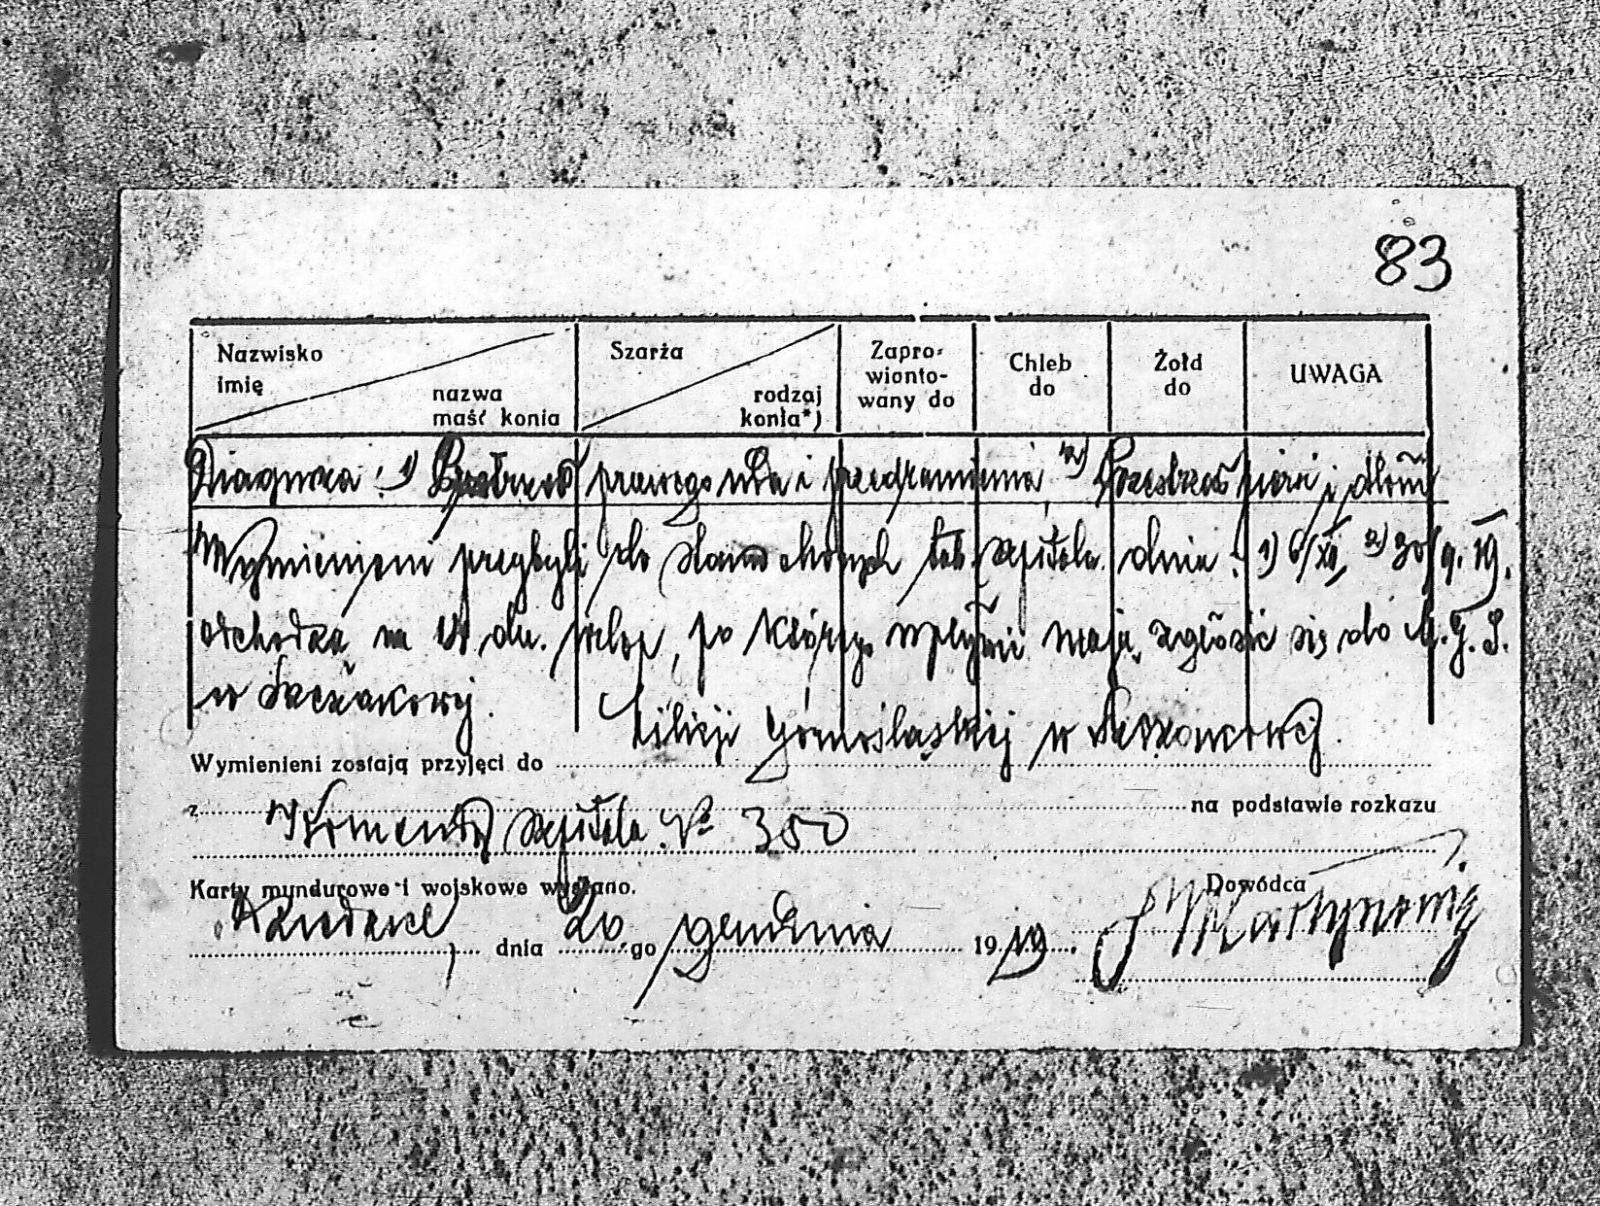 83
Nazwisko
imię
nazwa
maść konia
Szarża
rodzaj
konia*)
Zapro-
wianto-
wany do
Chleb
do
Żołd
do
UWAGA
Diagnoza: 1) Postrzał prawego uda i przedramienia, 2) Przestrzał piersi i dłoni
Wymienieni przybyli do stanu chorych tut. szpitala dnia: 1) 6/XII, 2) 30/9. 19.
odchodzą na 14 dn. urlop, po którego upływie mają zgłosić się do M. G. S.
w Szczakowej.
Milicji Górnośląskiej w Szczakowej.
Wymienieni zostają przyjęci do
z
na podstawie rozkazu
Komendy szpitala № 350
Karty mundurowe i wojskowe wysłano.
Dowódca
Dziedzice, dnia 20 go grudnia 1919.